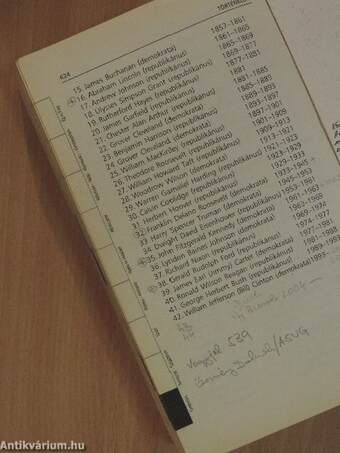 624
TÖRTÉNELEM
15. James Buchanan (demokrata) 1857–1861
16. Abraham Lincoln (republikánus) 1861–1865
17. Andrew Johnson (republikánus) 1865–1869
18. Ulysses Simpson Grant (republikánus) 1869–1877
19. Rutherford Hayes (republikánus) 1877–1881
20. James Garfield (republikánus) 1881
21. Chester Alan Arthur (republikánus) 1881–1885
22. Grover Cleveland (demokrata) 1885–1889
23. Benjamin Harrison (republikánus) 1889–1893
24. Grover Cleveland (demokrata) 1893–1897
25. William MacKinley (republikánus) 1897–1901
26. Theodore Roosevelt (republikánus) 1901–1909
27. William Howard Taft (republikánus) 1909–1913
28. Woodrow Wilson (demokrata) 1913–1921
29. Warren Gamaliel Harding (republikánus) 1921–1923
30. Calvin Coolidge (republikánus) 1923–1929
31. Herbert Hoover (republikánus) 1929–1933
32. Franklin Delano Roosevelt (demokrata) 1933–1945
33. Harry Spencer Truman (demokrata) 1945–1953
34. Dwight David Eisenhower (republikánus) 1953–1961
35. John Fitzgerald Kennedy (demokrata) 1961–1963
36. Lyndon Benes Johnson (demokrata) 1963–1969
37. Richard Nixon (republikánus) 1969–1974
38. Gerald Rudolph Ford (republikánus) 1974–1977
39. James Earl (Jimmy) Carter (demokrata) 1977–1981
40. Ronald Wilson Reagan (republikánus) 1981–1989
41. George Herbert Bush (republikánus) 1989–1993
42. William Jefferson (Bill) Clinton (demokrata) 1993–
43
44
2004
539
Antikvárium.hu